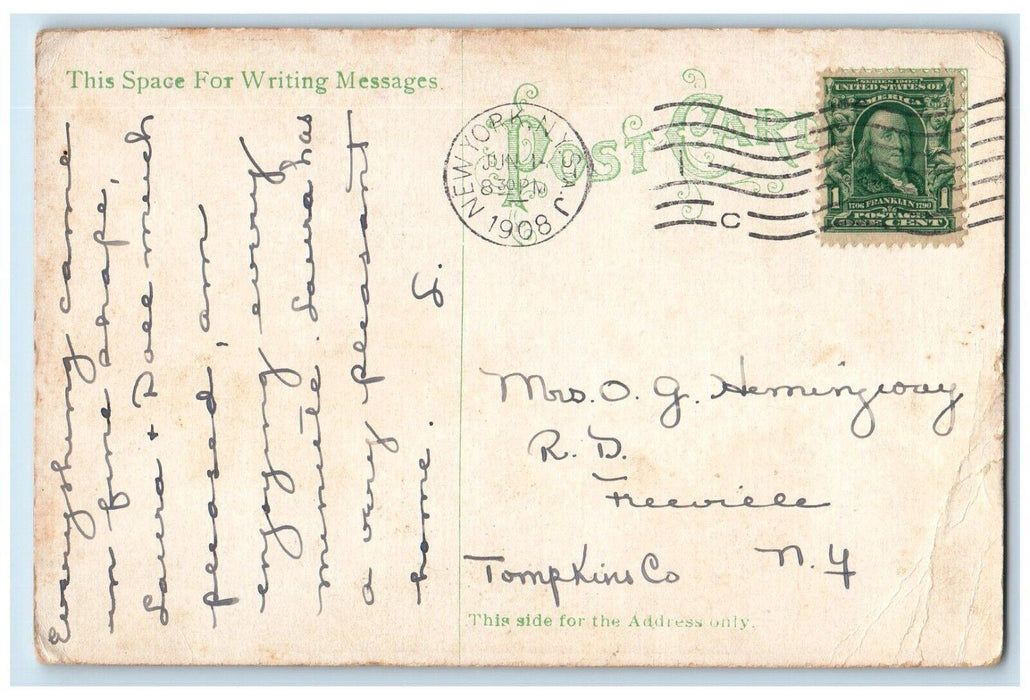 This Space For Writing Messages.
Everything came
in fine shape,
Laura + Doll much
pleased, am
enjoying every
minute. Laura has
a very pleasant
home. S.
POST CARD
NEW YORK, N.Y. STA. J
JUN 1
8 30 PM
1908
C
SERIES 1902
UNITED STATES OF
AMERICA
1 1
1706 FRANKLIN 1790
POSTAGE
ONE CENT
Mrs. O. G. Hemingway
R. D.
Freeville
Tompkins Co N. Y
This side for the Address only.